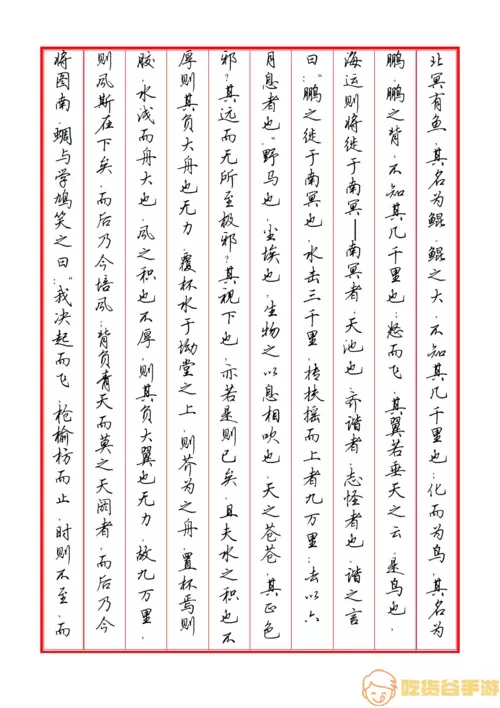 北冥有鱼，其名为鲲，鲲之大，不知其几千里也；化而为鸟，其名为
鹏，鹏之背，不知其几千里也；怒而飞，其翼若垂天之云，是鸟也，
海运则将徙于南冥—南冥者，天池也，齐谐者，志怪者也，谐之言
曰：“鹏之徙于南冥也，水击三千里，抟扶摇而上者九万里，去以六
月息者也”野马也，尘埃也，生物之以息相吹也，天之苍苍，其正色
邪？其远而无所至极邪？其视下也，亦若是则已矣，且夫水之积也不
厚则其负大舟也无力，覆杯水于坳堂之上，则芥为之舟，置杯焉则
胶，水浅而舟大也，风之积也不厚，则其负大翼也无力，故九万里，
则风斯在下矣，而后乃今培风；背负青天而莫之夭阏者，而后乃今
将图南，蜩与学鸠笑之曰：“我决起而飞，枪榆枋而止，时则不至，而
吃货谷手游